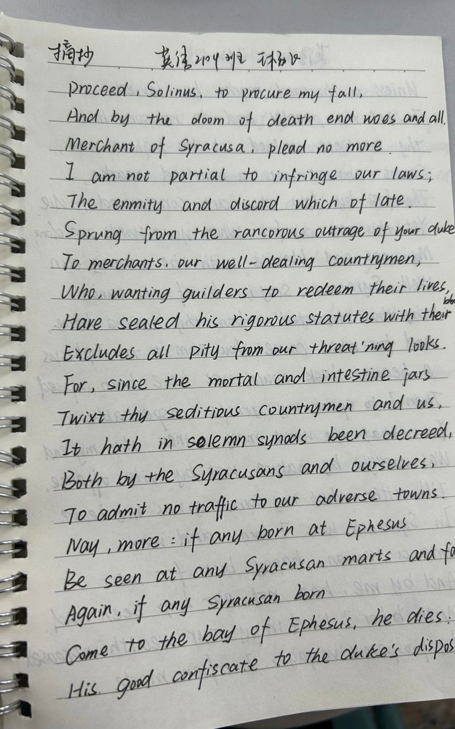 摘抄 英语2104班
Proceed, Solinus, to procure my fall,
And by the doom of death end woes and all.
Merchant of Syracusa, plead no more.
I am not partial to infringe our laws;
The enmity and discord which of late.
Sprung from the rancorous outrage of your duke
To merchants, our well-dealing countrymen,
Who, wanting guilders to redeem their lives,
Have sealed his rigorous statutes with their
Excludes all pity from our threat'ning looks.
For, since the mortal and intestine jars
Twixt thy seditious countrymen and us,
It hath in solemn synods been decreed,
Both by the Syracusans and ourselves,
To admit no traffic to our adverse towns.
Nay, more: if any born at Ephesus
Be seen at any Syracusan marts and
Again, if any Syracusan born
Come to the bay of Ephesus, he dies,
His good confiscate to the duke's